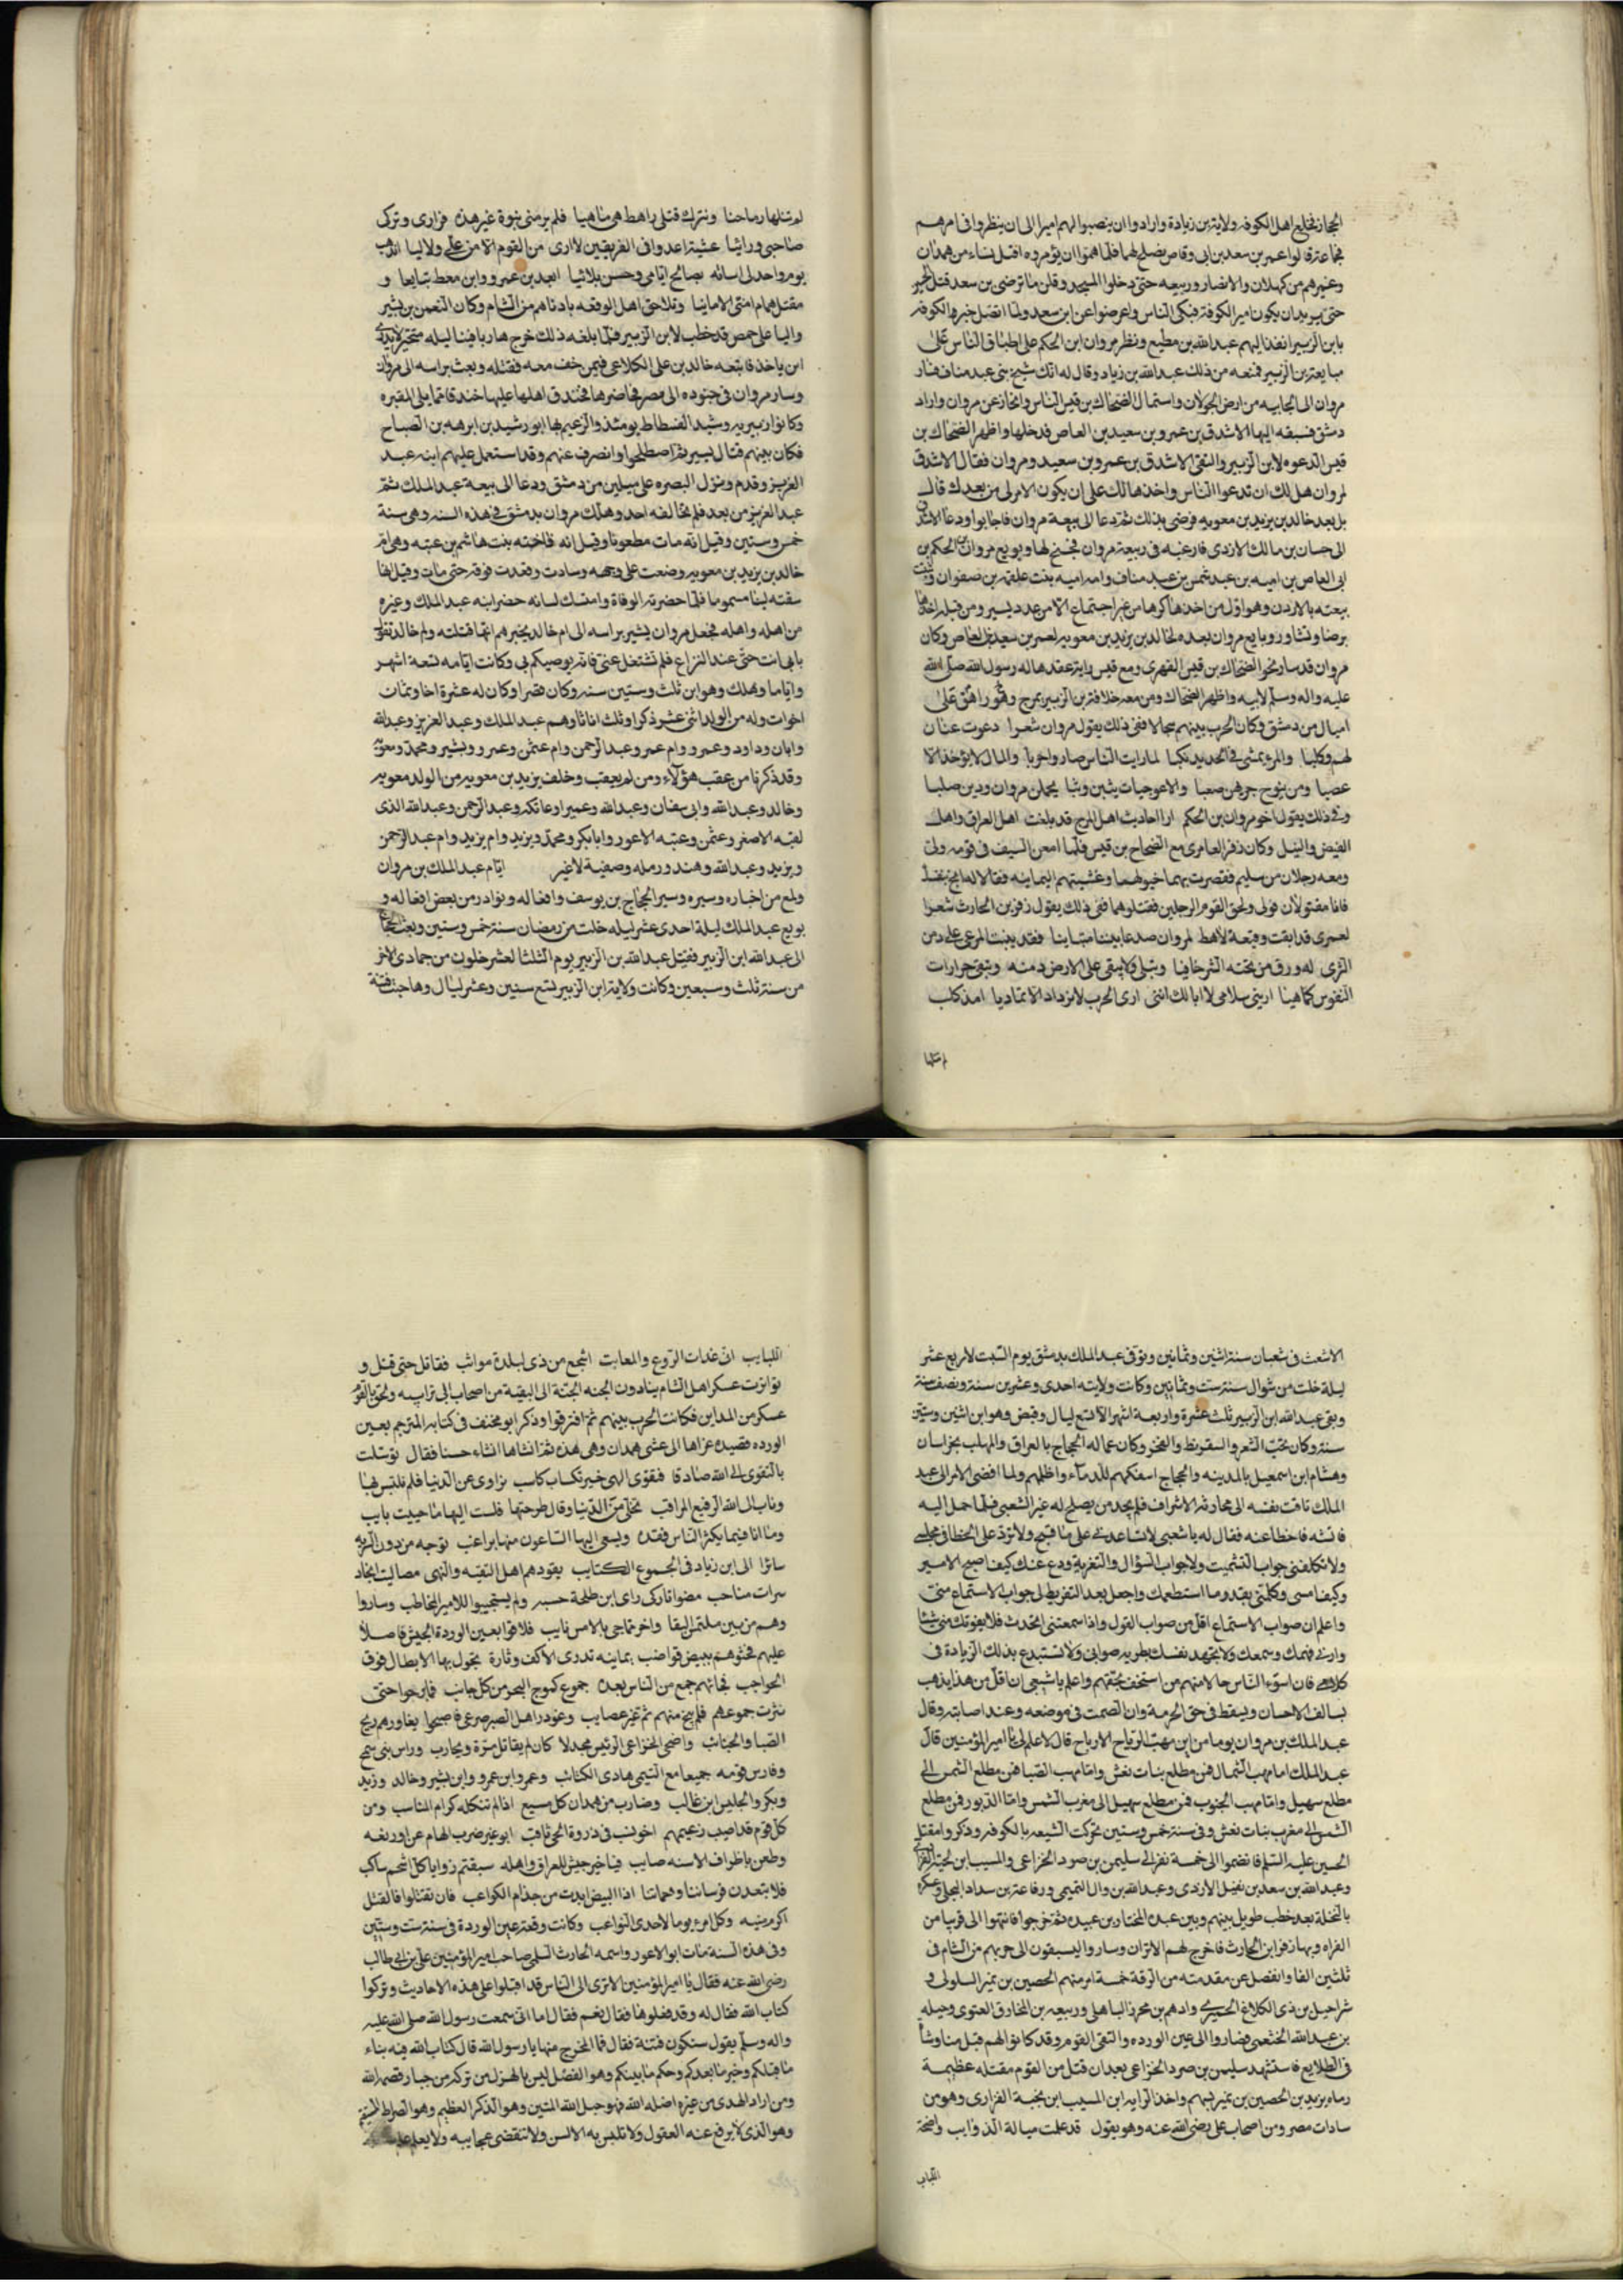 الحجاز فخلع اهل الكوفه ولاية بن زيادة وارادوا ان ينصبوا لهم اميرا الى ان ينظروا فى امرهم
فجاعة قالوا عمر بن سعد بن ابى وقاص يصلح لها فلما هموا ان يؤمروه اقبل نساء من همدان
وغيرهم من كهلان والانصار وربيعه حتى دخلوا المسجد وقلن ما ترضى بن سعد قتل الحسين
حتى يريد ان يكون امير الكوفة فبكى الناس واعرضوا عن ابن سعد ولما اتصل خبر الكوفه
بابن الزبير انفذ اليهم عبد الله بن مطيع ونظر مروان ابن الحكم على اطباق الناس على
مبايعة بن الزبير فمنعه من ذلك عبد الله بن زياد وقال له انك شيخ بنى عبد مناف فسار
مروان الى الجابيه من ارض الجولان واستمال الضحاك بن قيس الناس وانحاز عن مروان واراد
دمشق فسبقه اليها الاشدق بن عمرو بن سعيد بن العاص فدخلها واظهر الضحاك بن
قيس الدعوه لابن الزبير والتقى الاشدق بن عمرو بن سعيد ومروان فقال الاشدق
لمروان هل لك ان تدعوا الناس واخذها لك على ان يكون الامر لى من بعدك قال
بل بعد خالد بن يزيد بن معويه فرضى بذلك ثم دعا الى بيعة مروان فاجابوا ودعا الاشدق
الى حسان بن مالك الازدى فارغبه فى بيعة مروان فجنح لها وبويع مروان بن الحكم بن
ابى العاص بن اميه بن عبد شمس بن عبد مناف وامه اميه بنت علقمة بن صفوان وتمت
بيعته بالاردن وهو اول من اخذها كرها من غير اجتماع الا من عدد يسير ومن قبله اخذها
برضا وتشاور وبايع مروان بعده لخالد بن يزيد بن معويه لعمر بن سعيد بن العاص وكان
مروان قد سار نحو الضحاك بن قيس الفهرى ومع قيس راية عقدها له رسول الله صلى الله
عليه واله وسلم لابيه واظهر الضحاك ومن معه خلافة بن الزبير بمرج راهط على
اميال من دمشق وكان الحرب بينهم سجالا ففى ذلك يقول مروان شعرا دعوت عنان
لهم وكلبا والمرء يمشى فى الحديد نكبا لما رايت الناس صاروا حربا والمال لا يؤخذ الا
غصبا
وفى ذلك يقول اخو مروان بن الحكم ارا الحاديث اهل المرج قد بلغت اهل العراق واهل
الفيض والنيل وكان زفر العامرى مع الضحاح بن قيس فلما امعن السيف فى قومه ولى
ومعه رجلان من سليم فقصرت بهما خيولهما وغشيتهم اليمانيه فقالا له انج بنفسك
فانا مقتولان فولى ولحق القوم الرجلين فقتلوهما ففى ذلك يقول زفر بن الحارث شعرا
لعمرى قد ابقت وقيعة لاهط لمروان صدعا بيننا متباينا فقد ينبت المرعى على دمن
الثرى له ورق من تحته الشر خافيا وتبلى ولا يبقى على الارض دمنه وتبقى حرارات
النفوس كما هيا ارينى سلاحى لا ابا لك اننى ارى الحرب لا تزداد الا تماديا
لم تنلها
لم تنلها رماحنا ونترك قتلى راهط هى ما هيا فلم ير منى نبوة غير هذه فرارى وتركى
صاحبى ورائيا عشية اعدوا فى الفريقين لا ارى من القوم الا من على ولا ليا ايذهب
يوم واحد ان اسائه بصالح ايامى وحسن بلائيا ابعد بن عمرو وابن معط تتابعا و
مقتل همام امنى الامانيا وتلاحق اهل الوقعه باجنادهم من الشام وكان النعمن بن بشير
واليا على حمص قد خطب لابن الزبير فلما بلغه ذلك خرج هاربا فينا ليله متحير لا يدرى
اين ياخذ فاتبعه خالد بن على الكلاعى فيمن خف معه وقتله وبعث براسه الى مروان
وسار مروان فى جنوده الى مصر فحاصرها فخندق اهلها عليها خندقا مما يلى المقبره
وكانوا زبيريه وسيد الفسطاط يومئذ والزعيم لها ابو رشيد بن ابرهه بن الصباح
فكان بينهم قتال يسير ثم اصطلحوا وانصرف عنهم وقد استعمل عليهم ابنه عبد
العزيز وقدم ونزل البصره على ميلين من دمشق ودعا الى بيعة عبد الملك ثم
عبد العزيز من بعد فلم يخالفه احد وهلك مروان بدمشق فى هذه السنه وهى سنة
خمس وستين وقيل انه مات مطعونا وقيل انه فاخته بنت هاشم بن عتبه وهى ام
خالد بن يزيد بن معويه وضعت على وجهه وسادت وقعدت فوقه حتى مات وقيل انها
سقته لبنا مسموما فلما حضرته الوفاة وامسك لسانه حضر ابنه عبد الملك وغيره
من اهله واهله فجعل مروان يشير براسه الى ام خالد يخبرهم انها قتلته وام خالد تقول
بابى انت حتى عند النزاع فلم تشتغل عنى فانه يوصيكم بى وكانت ايامه تسعة اشهر
واياما وهلك وهو ابن ثلث وستين سنه وكان قصيرا وكان له عشرة اخا وثمان
اخوات وله من الولد اثنى عشر ذكرا وثلث اناثا وهم عبد الملك وعبد العزيز وعبد الله
وابان وداود وعمرو وام عمر وعبد الرحمن وام عثمن وعمرو وبشير ومحمد ومعويه
وقد ذكرنا من عقب هؤلاء ومن لم يعقب وخلف يزيد بن معويه من الولد معويه
وخالد وعبد الله وابى سفان وعبد الله وعمير وعاتكه وعبد الرحمن وعبد الله الذى
لقبه الاصغر وعثمن وعتبه الاعور وابابكر ومحمد ويزيد وام يزيد وام عبد الرحمن
ويزيد وعبد الله وهند ورمله وصفية لا غير ايام عبد الملك بن مروان
ولمع من اخباره وسيره وسير الحجاج بن يوسف وافعاله ونوادر من بعض افعاله و
بويع عبد الملك ليلة احدى عشر ليله خلت من رمضان سنة خمس وستين وبعث الحجاج
الى عبد الله ابن الزبير فقتل عبد الله بن الزبير يوم الثلثا لعشر خلون من جمادى الاخر
من سنة ثلث وسبعين وكانت ولاية ابن الزبير تسع سنين وعشر ليال وهاجت فتنة
الاشعث فى شعبان سنة اثنين وثمانين وتوفى عبد الملك بدمشق يوم السبت لاربع عشر
ليلة خلت من شوال سنة ست وثمانين وكانت ولايته احدى وعشرين سنة ونصف سنة
وبقى عبد الله ابن الزبير ثلث عشرة واربعة اشهر الا تسع ليال وقبض وهو ابن اثنين وستين
سنة وكان يحب الشعر والتقريظ والفخر وكان عماله الحجاج بالعراق والمهلب بخراسان
وهشام ابن اسمعيل بالمدينه والحجاج اسفكهم للدماء واظلمهم ولما افضى الامر الى عبد
الملك تاقت نفسه الى محادثة الاشراف فلم يجد من يصلح له غير الشعبى فلما حمل اليه
فاتشه فاخطا عنه فقال له يا شعبى لا تساعدنى على ما قبح ولا ترد على الخطا فى مجلسى
ولا تكلفنى جواب التشميت ولا جواب السؤال والتعزية ودع عنك كيف اصبح الامير
وكيف امسى وكلمنى بقدر ما استطعمك واجعل بعد التفريط لى جواب الاستماع منى
واعلم ان صواب الاستماع اقل من صواب القول واذا سمعتنى اتحدث فلا يفوتك منى شئا
وارنى فهمك وسمعك ولا تجتهد نفسك بطريه صوابى ولا تستبدع بذلك الزيادة فى
كلامى فان اسوء الناس حالا منهم من استخف بحقهم واعلم يا شعبى ان اقل من هذا يذهب
بسالف الاحسان ويسقط فى حق الحرمة وان الصمت فى موضعه وعند اصابته وقال
عبد الملك بن مروان يوما من اين مهب الرياح الارباح قال لا علم لى يا امير المؤمنين قال
عبد الملك اما مهب الشمال فمن مطلع بنات نعش واما مهب الصبا فمن مطلع الشمس الى
مطلع سهيل واما مهب الجنوب فمن مطلع سهيل الى مغرب الشمس واما الدبور فمن مطلع
الشمس الى مغرب بنات نعش وفى سنة خمس وستين تحركت الشيعه بالكوفه وذكروا مقتل
الحسين عليه السلام فانضموا الى خمسة نفر الى سليمن بن صرد الخزاعى والمسيب ابن نجبة الفزارى
وعبد الله بن سعد بن نفيل الازدى وعبد الله بن وال التميمى ورفاعة بن سداد البجلى وعسكروا
بالنخلة بعد خطب طويل بينهم وبين عبده المختار بن عبيده ثم خرجوا فانتهوا الى قرقيا من
الفراه وبها زفر ابن الحارث فاخرج لهم الانزال وساروا ليسبقون الى حربهم من الشام فى
ثلثين الفا وانفصل عن مقدمته من الرقة خمسة امر منهم الحصين بن نمير السلولى و
شراحيل بن ذى الكلاع الحميرى وادهم بن محرز الباهلى وربيعه بن المخارق الغنوى وجبله
بن عبد الله الخثعمى فصاروا الى عين الورده والتقى القوم وقد كانوا لهم قبل مناوشا
فى الطلايع فاستشهد سليمن بن صرد الخزاعى بعد ان قتل من القوم مقتله عظيمة
رماه يزيد بن الحصين بن نمير بسهم واخذ الرايه ابن المسيب ابن نجبة الفزارى وهو من
سادات مصر ومن اصحاب على رضى الله عنه وهو يقول قد علمت ميالة الذوايب واضحة
اللباب
اللبايب انى غدات الروع والمعابت اشجع من ذى لبدة مواثب فقاتل حتى قتل و
تواترت عسكر اهل الشام ينادون الجنه الجنة الى البقية من اصحاب ابى ترابيه ولحق بالقوم
عسكر من المداين فكانت الحرب بينهم ثم افترقوا وذكر ابو مخنف فى كتابه المترجم بعين
الورده قصيده عزاها الى عشى همدان وهى هذه ثم انشاها انشاء حسنا فقال توسلت
بالتقوى الى الله صادقا فتقوى الهى خير تكساب كاسب تزاوى عن الدنيا فلم يلتبس لها
وتاب الى الله الرفيع المراقب تخلى من الدنيا وقال طرحتها فلست اليها ما حييت بايب
وما انا فيما يكثر الناس فقده ويسعى اليها الساعون منها براغب توجه من دون الثريه
سائرا الى ابن زياد فى الجموع الكتايب يقودهم اهل التقيه والنهى مصاليت انجاد
سرات مناحب مضوا تاركى راى ابن طلحة حسبه ولم يستجيبوا للامير المخاطب وساروا
وهم من بين ملتمس التقا واخر مما جى بالامس تايب فلاقوا بعين الوردة الجيش فاصلا
عليهم فحثوهم ببيض قواضب يمانيه تدرى الاكف وتارة بخول بها الابطال فوق
الحواجب فجائهم جمع من الناس بعده جموع كموج البحر من كل جانب فما برحوا حتى
نثرت جموعهم فلم ينج منهم ثم غير عصايب وغودر اهل الصبر صرعى فاصبحوا يغاورهم ريح
الصبا والجنائب واضحى الخزاعى الرئيس مجدلا كان لم يقاتل مرة ويحارب وراس بنى شمخ
وفارس قومه جميعا مع التيمى هادى الكتائب وعمرو ابن عمرو وابن بشير وخالد وزيد
وبكر والحليس ابن غالب وضارب من همدان كل مسيع اذا لم تنكله كرام المناسب ومن
كل قوم قد اصيب زعيمهم
وطعن باطراف الاسنه صايب فيا خير جيش للعراق واهله سقيتم زوايا كل اشحم ساكب
فلا يبعدن فرساننا وحماتنا اذا البيض ابدت من خدام الكواعب فان تقتلوا فالقتل
اكرم ميتة وكل امرء يوما لاحدى النوايب وكانت وقعة عين الوردة فى سنة ست وستين
وفى هذه السنة مات ابو الاعور واسمه الحارث السلمى صاحب امير المؤمنين على بن ابى طالب
رضى الله عنه فقال يا امير المؤمنين لا ترى الى الناس قد اقبلوا على هذه الاحاديث وتركوا
كتاب الله فقال له وقد فعلوها فقال نعم فقال اما انى سمعت رسول الله صلى الله عليه
واله وسلم يقول ستكون فتنة فقال فما المخرج منها يا رسول الله قال كتاب الله فيه نباء
ما قبلكم وخبر ما بعدكم وحكم ما بينكم وهو الفصل ليس بالهزل من تركه من جبار قصمه الله
ومن اراد الهدى من غيره اضله الله فهو حبل الله المتين وهو الذكر العظيم وهو الصراط المستقيم
وهو الذى لا يزيغ عنه العقول ولا تلبس به الالسن ولا تنقضى عجايبه ولا يعلم